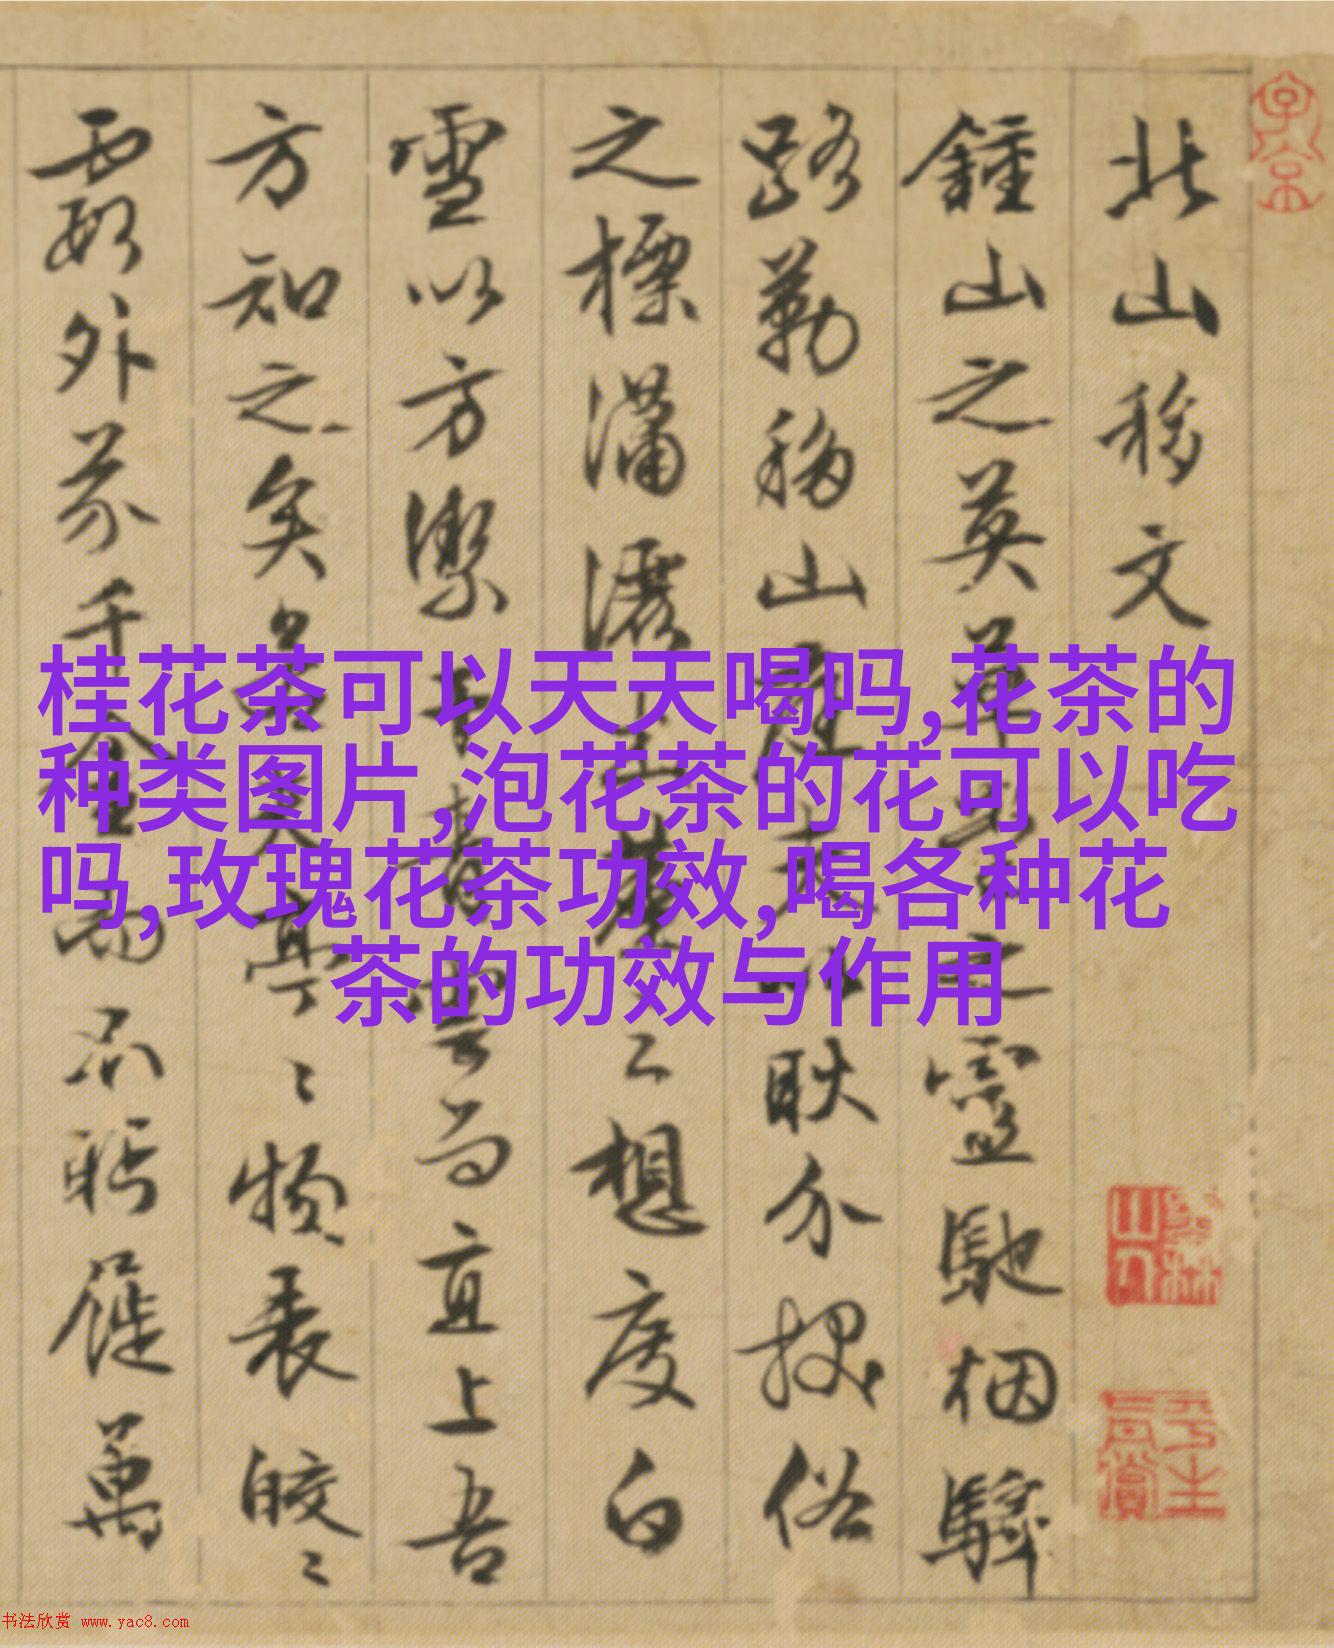 北山移文
鍾山之英草堂之靈馳烟驛
路勒移山庭夫以耿介拔俗
之標瀟灑出塵之想度白
雪以方潔干青雲而直上吾
方知之矣若其亭〻物表皎〻
霞外芥千金而不眄屣萬
桂花茶可以天天喝吗,花茶的
种类图片,泡花茶的花可以吃
吗,玫瑰花茶功效,喝各种花
茶的功效与作用
书法欣赏 www.yac8.com